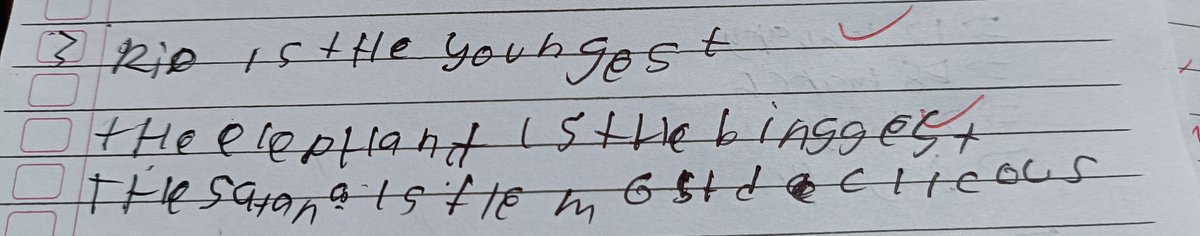 3 Rio is the youngest
the elephant is the binggest
the satana is the most declicous